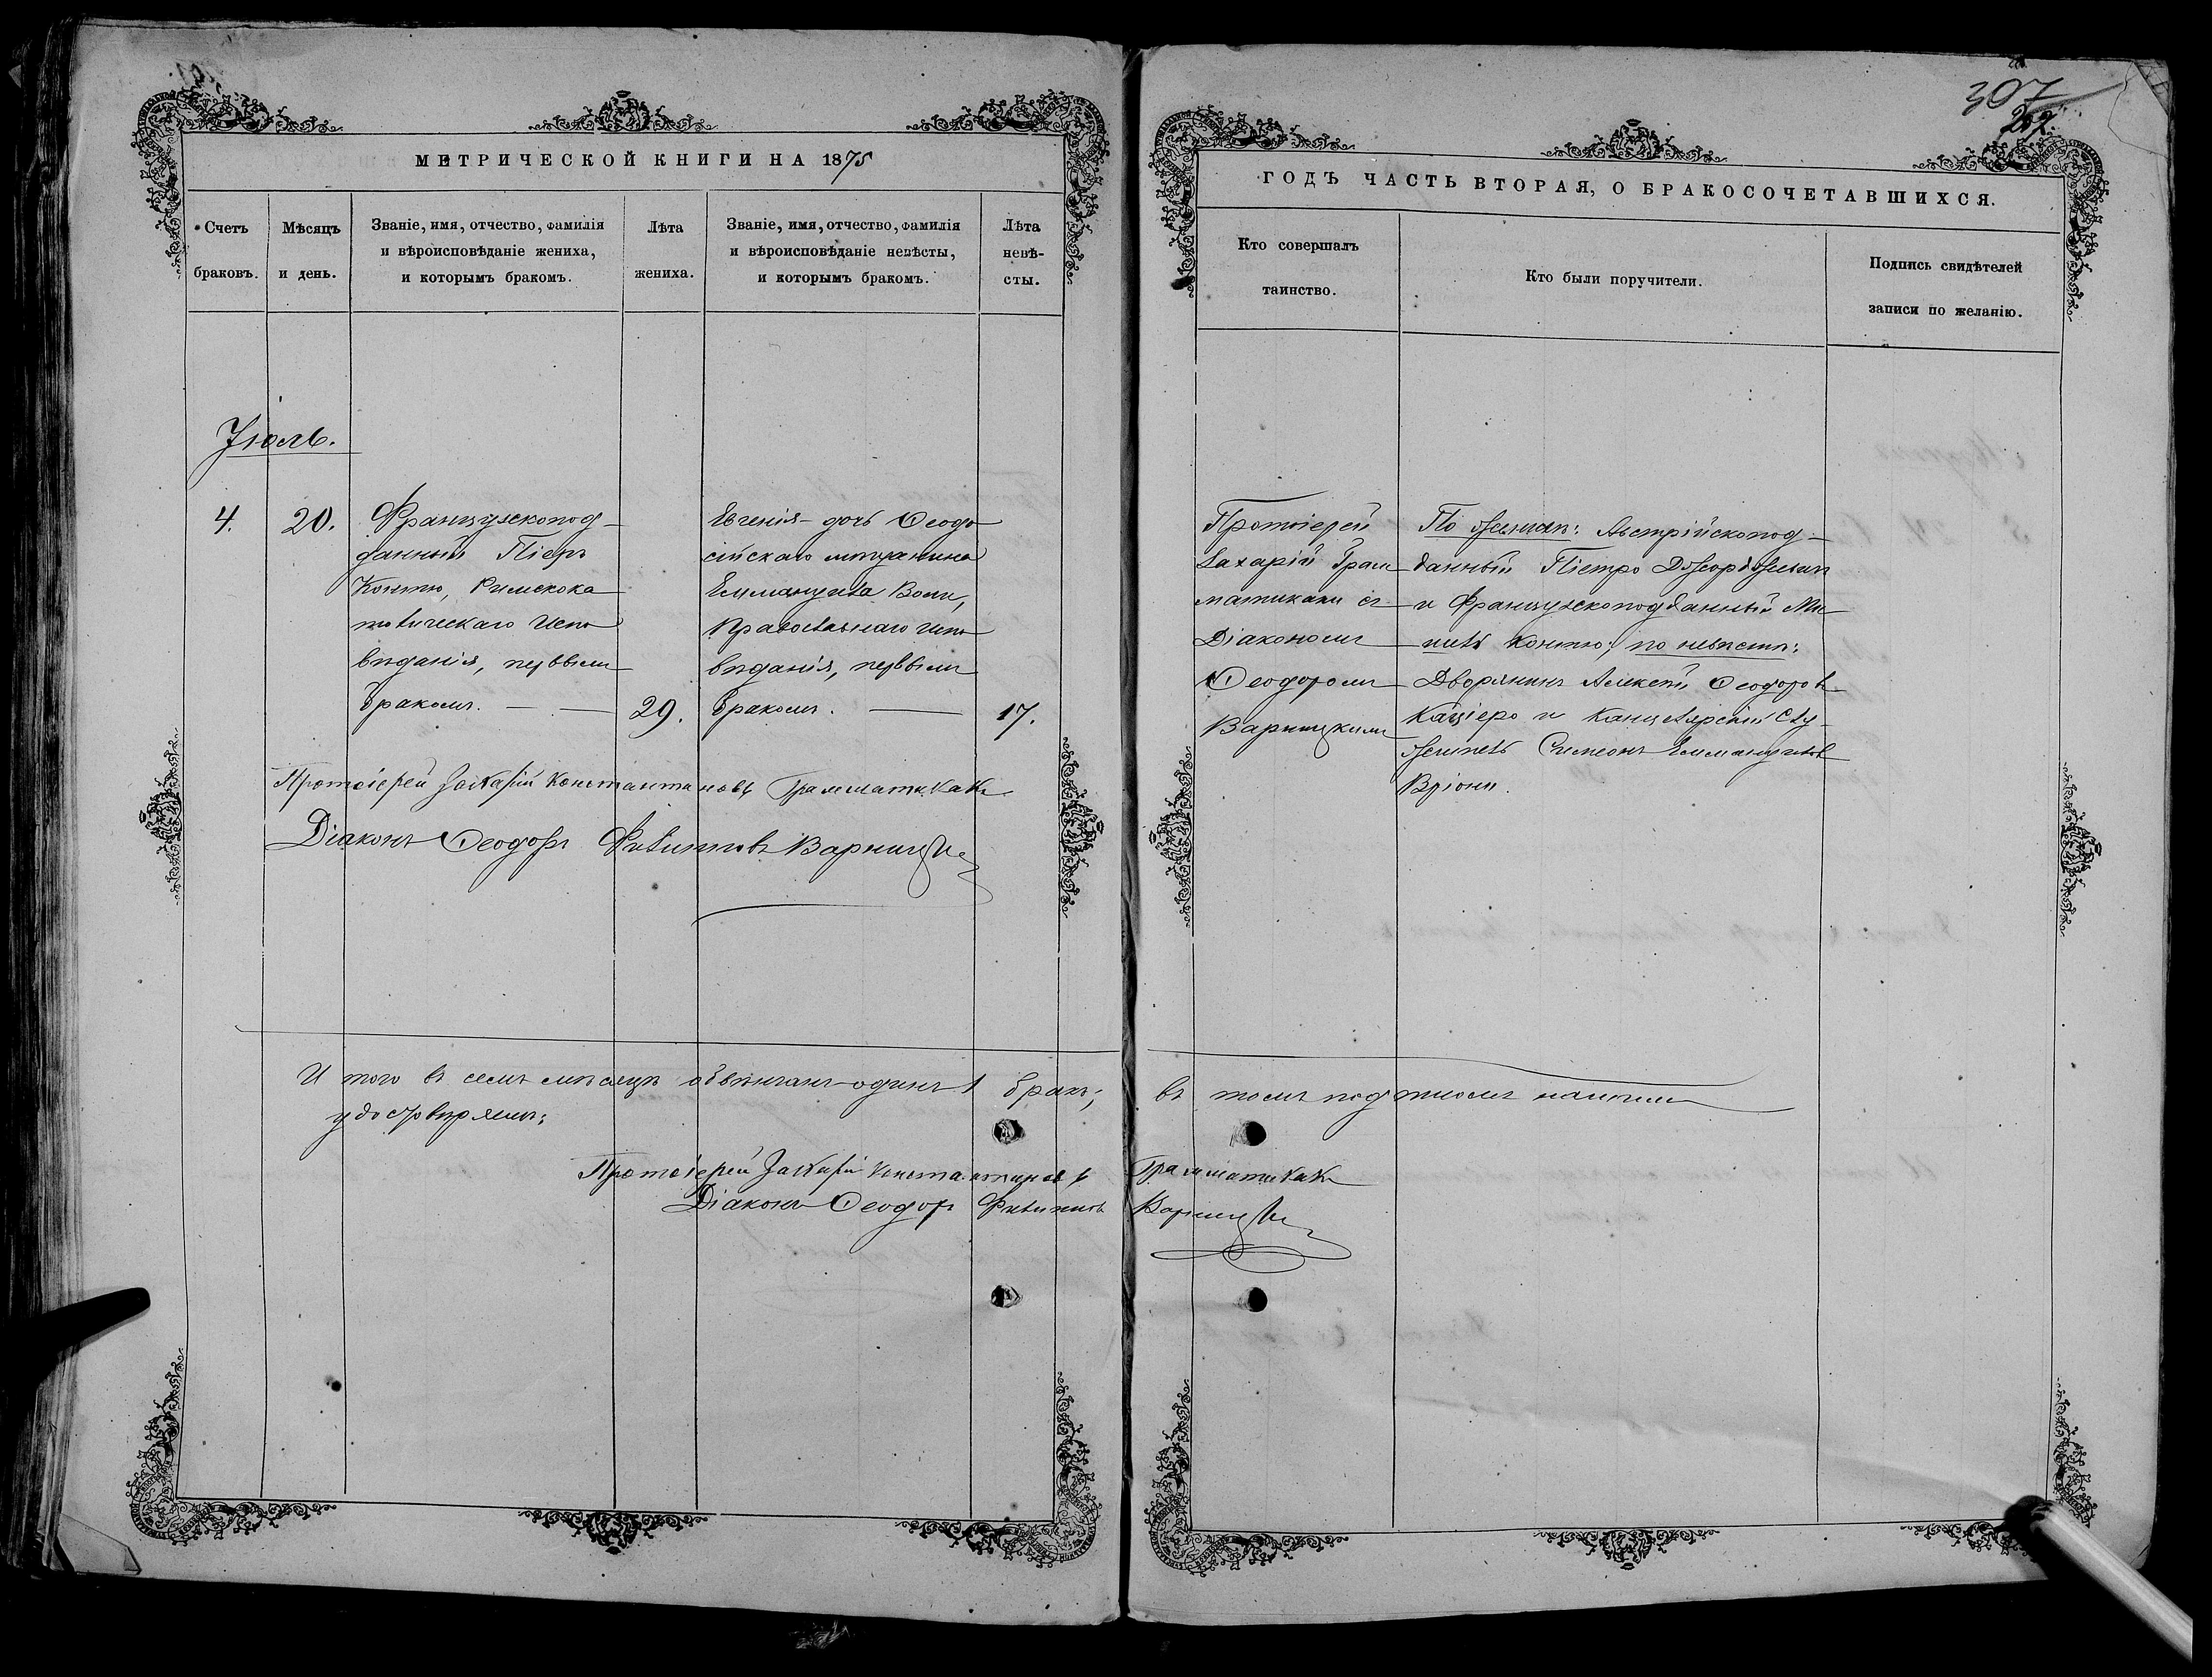 307
207.
МЕТРИЧЕСКОЙ КНИГИ НА 1875
ГОДЪ ЧАСТЬ ВТОРАЯ, О БРАКОСОЧЕТАВШИХСЯ.
Счетъ
браковъ.
Мѣсяцъ
и день.
Званіе, имя, отчество, фамилія
и вѣроисповѣданіе жениха,
и которымъ бракомъ.
Лѣта
жениха.
Званіе, имя, отчество, фамилія
и вѣроисповѣданіе невѣсты,
и которымъ бракомъ.
Лѣта
невѣ-
сты.
Кто совершалъ
таинство.
Кто были поручители.
Подпись свидѣтелей
записи по желанію.
Іюль.
4.
20.
Французскопод-
данный Піеръ
Контю, Римскока
толическаго Испо
вѣданія, первымъ
бракомъ.
29.
Евгенія - дочь Ѳеодо
сійскаго мѣщанина
Еммануила Воли,
Православнаго испо
вѣданія, первымъ
бракомъ.
17.
Протоіерей
Захарій Грам
матикаки съ
Діакономъ
Ѳеодоромъ
Варницкимъ
По женихѣ: Австрійскопод-
данный Піетро
и Французскоподданный Ми
шель Контю; по невѣстѣ:
Дворянинъ Алексѣй Ѳеодоровъ
Каціеро и Канцелярскій Слу-
житель Симеонъ Еммануиловъ
Вріони.
Протоіерей Захарій Константиновъ Грамматикаки
Діаконъ Ѳеодоръ Филипповъ Варницкій
Итого въ семъ мѣсяцѣ обвѣнчанъ одинъ 1 бракъ; въ томъ подписомъ нашимъ
удостовѣряемъ:
Протоіерей Захарій Константиновъ Грамматикаки
Діаконъ Ѳеодоръ Филипповъ Варницкій